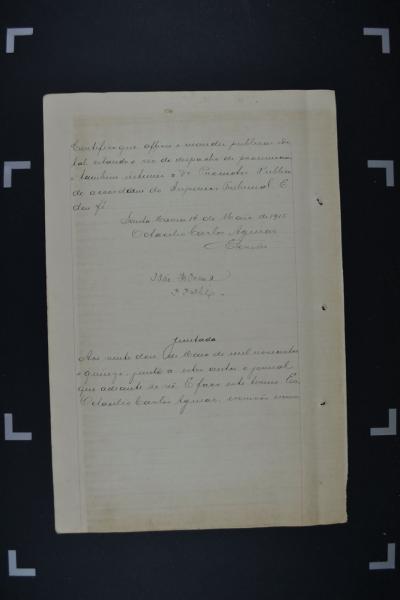 Certifico que affixei e mandei publicar edi
tal citando o réo do despacho de pronuncia
e tambem intimei o Dr. Promotor Publico
do accordam do Superior Tribunal. E
dou fé.
Santa Maria 14 de Maio de 1915
Octacilio Carlos Aguiar
Escrivão
Juntada
Aos vinte dois de Maio de mil novecentos
e quinze, junto a estes autos o jornal
que adiante se vê. E faço este termo. Eu,
Octacilio Carlos Aguiar, escrivão